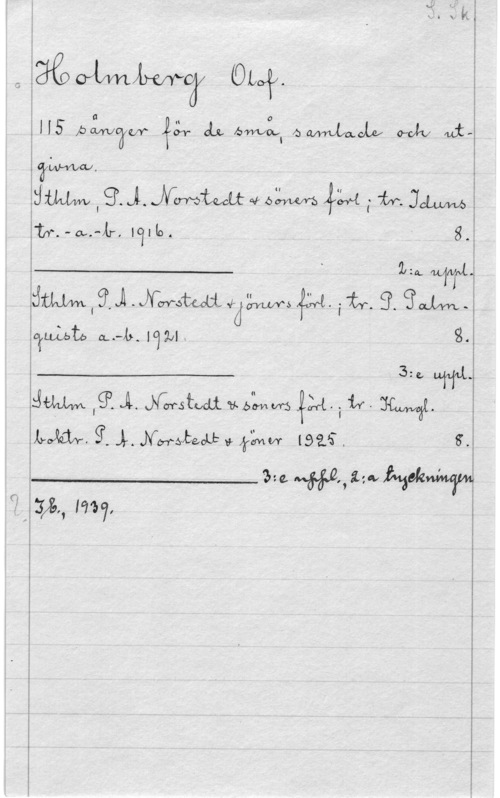 S. Sk.
Holmberg Olof.
115 sånger för de små, samlade och ut-
givna.
Sthlm, P. A. Norstedt & söners förl.; tr. Iduns
tr.-a.-b. 1916. 8.
2:a uppl.
Sthlm, P. A. Norstedt & söners förl.; tr. P. Palm-
quists a.-b. 1921. 8.
3:e uppl.
Sthlm, P. A. Norstedt & söners förl.; tr. Kungl.
boktr. P. A. Norstedt & söner 1925. 8.
3:e uppl., 2:a tryckningen
Ib., 1939.